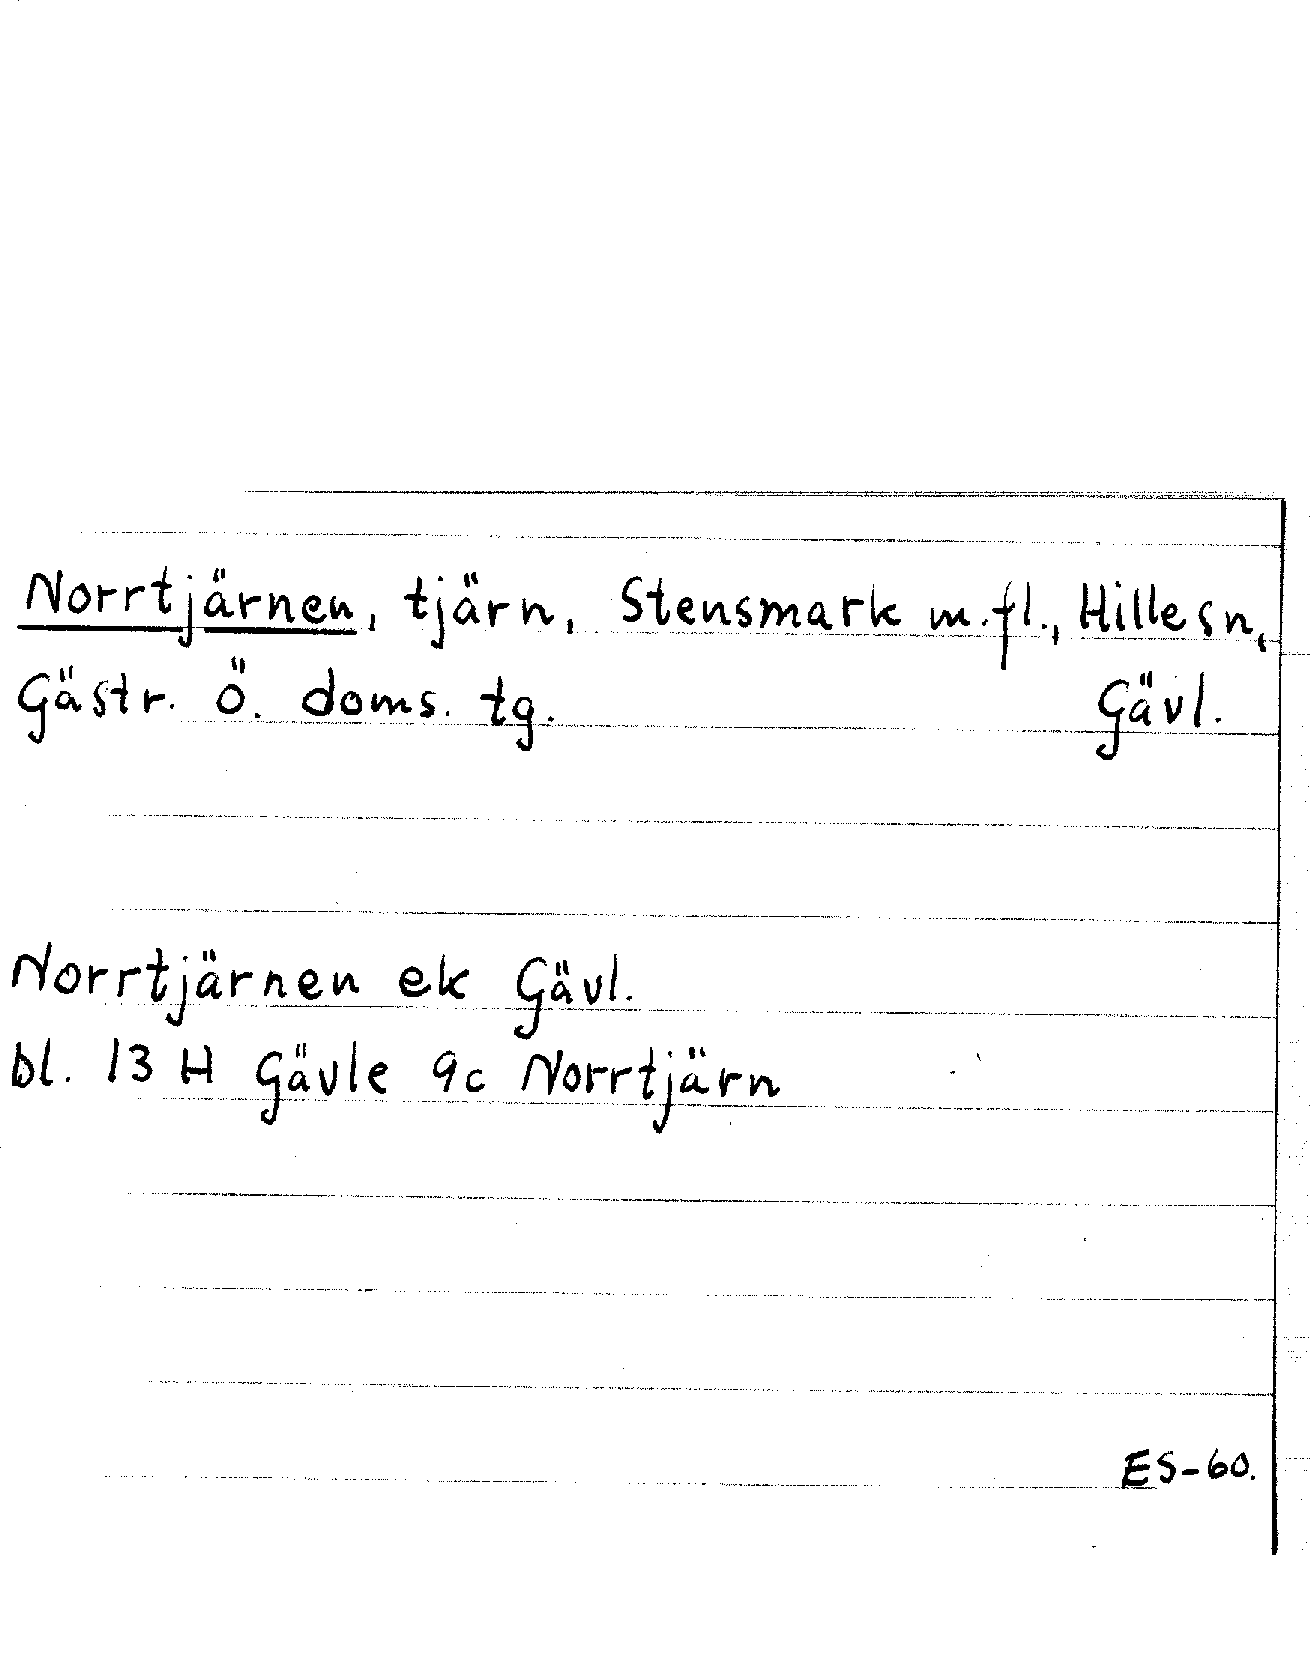 Norrtjärnen, tjärn, Stensmark m.fl., Hille sn,
Gästr. Ö. doms. tg. Gävl.
Norrtjärnen ek Gävl.
bl. 13 H Gävle 9c Norrtjärn
ES-60.